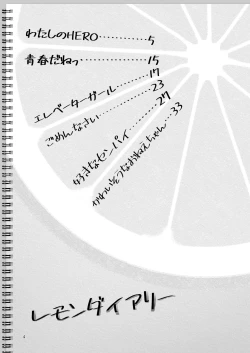 わたしのHERO…………5
青春だねっ…………15
エレベーターガール…………17
ごめんなさい…………23
好きなセンパイ………27
かわいそうなおねえちゃん…33
レモンダイアリー